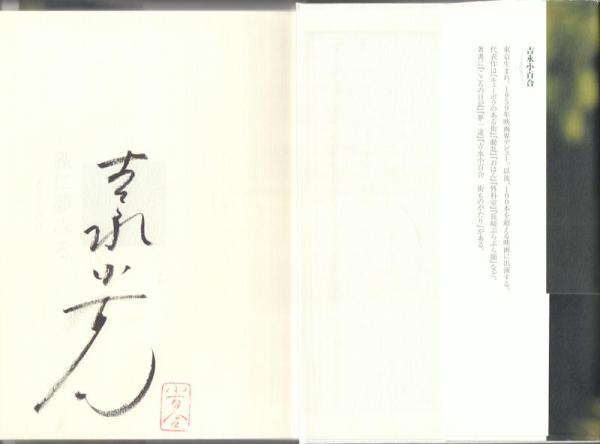 吉永小百合
東京生まれ。1959年映画界デビュー、以後、100本を超える映画に出演する。
代表作は『キューポラのある街』『動乱』『おはん』『外科室』『長崎ぶらぶら節』など。
著書に『こころの日記』『夢一途』『吉永小百合 街ものがたり』がある。
吉永小百合
小百合